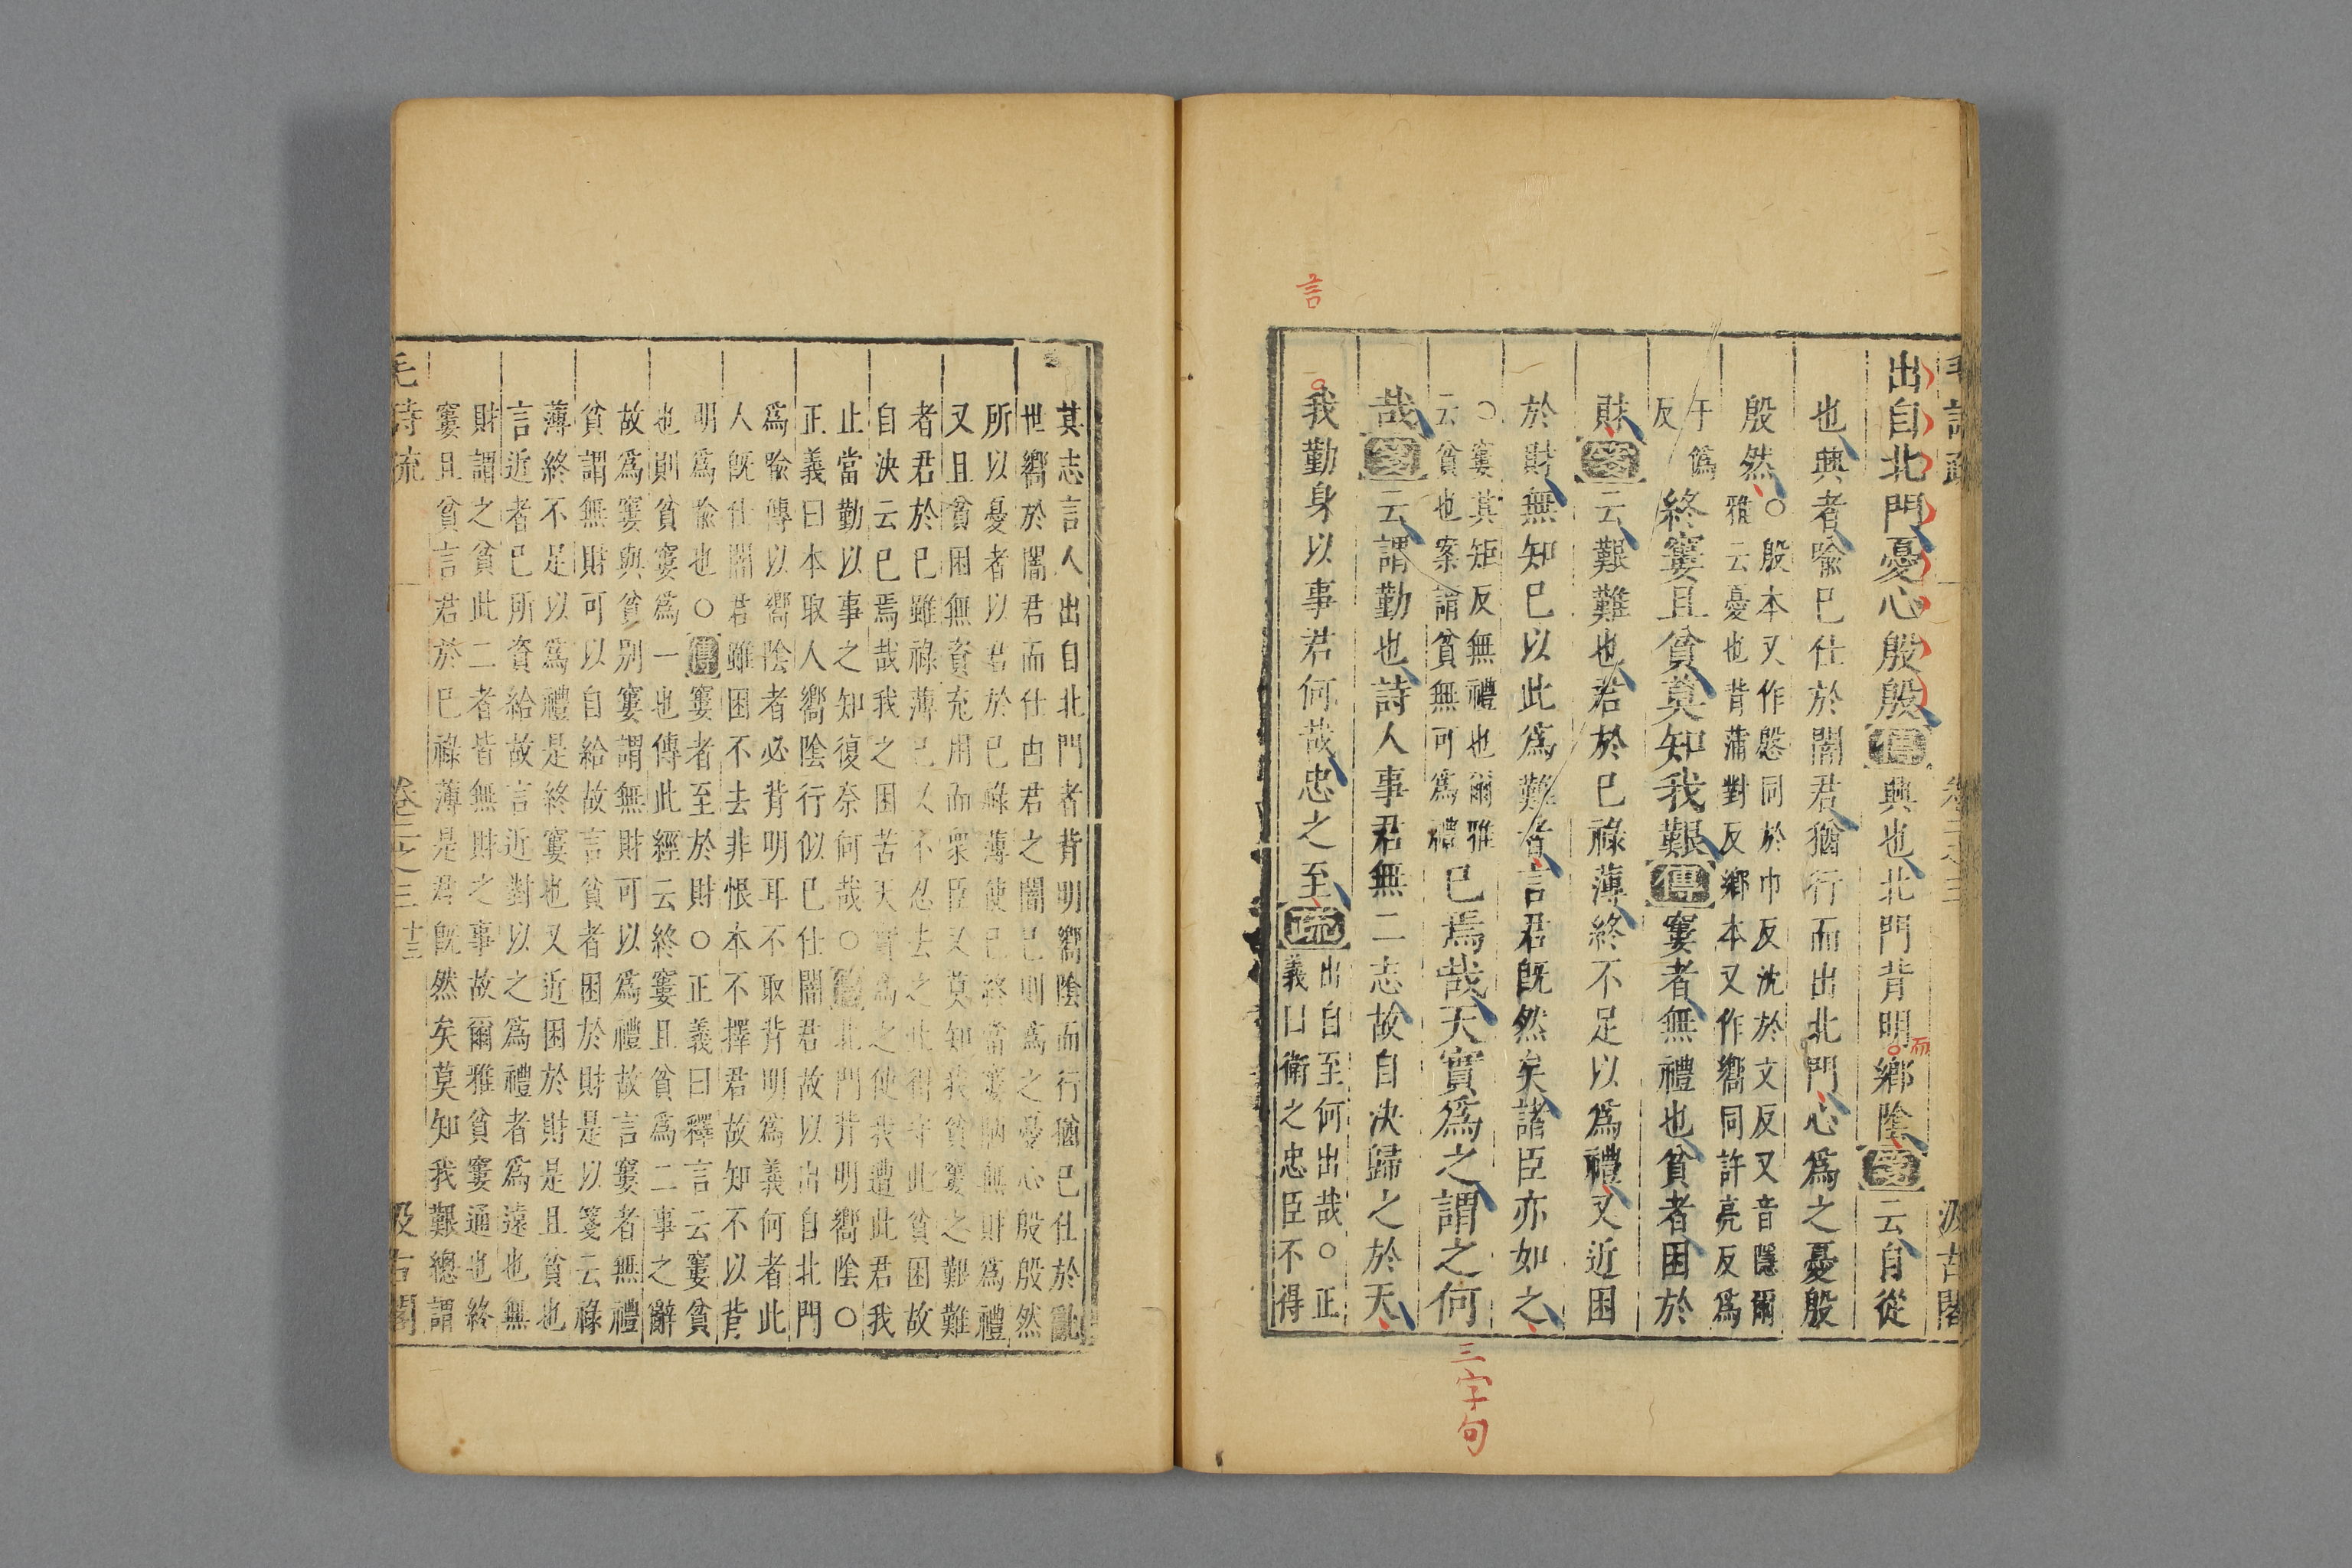 出自北門憂心殷殷傳興也北門背明鄉陰箋云自從
而
也興者喻己仕於闇君猶行而出北門心爲之憂殷
殷然○殷本又作慇同於巾反沈於文反又音隱爾
雅云憂也背蒲對反鄉本又作嚮同許亮反爲
于僞
反
終窶且貧莫知我艱傳窶者無禮也貧者困於
財箋云艱難也君於己祿薄終不足以爲禮又近困
於財無知已以此爲難者言君旣然矣諸臣亦如之
○窶其矩反無禮也爾雅
云貧也案謂貧無可爲禮
已焉哉天實爲之謂之何
三字句
哉箋云謂勤也詩人事君無二志故自決歸之於天
言
我勤身以事君何哉忠之至疏出自至何出哉○正
義曰衛之忠臣不得
毛詩疏
卷三之三
汲古閣
其志言人出自北門者背明嚮陰而行猶已仕於亂
世嚮於闇君而仕由君之闇已則爲之憂心殷殷然
所以憂者以君於已祿薄使已終當窶陋無財爲禮
又且貧困無資充用而衆臣又莫知我貧窶之艱難
者君於已雖祿薄已又不忍去之止得守此貧困故
自決云已焉哉我之困苦天實爲之使我遭此君我
止當勤以事之知復奈何哉○傳北門背明嚮陰○
正義曰本取人嚮陰行似已仕闇君故以出自北門
爲喻傳以嚮陰者必背明耳不取背明爲義何者此
人旣仕闇君雖困不去非恨本不擇君故知不以背
明爲喻也○傳窶者至於財○正義曰釋言云窶貧
也則貧窶爲一也傳此經云終窶且貧爲二事之辭
故爲窶與貧別窶謂無財可以爲禮故言窶者無禮
貧謂無財可以自給故言貧者困於財是以箋云祿
薄終不足以爲禮是終窶也又近困於財是且貧也
言近者已所資給故言近對以之爲禮者爲遠也無
財謂之貧此二者皆無財之事故爾雅貧窶通也終
窶且貧言君於已祿薄是君旣然矣莫知我艱總謂
毛詩疏
卷三之三
十三
汲古閣